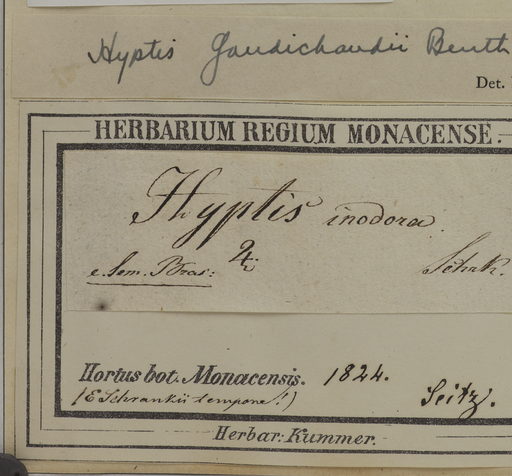 Hyptis Gaudichaudii Benth
Det.
HERBARIUM REGIUM MONACENSE.
Hyptis inodora
e. Sem. Bras: ♃ Schrk.
Hortus bot. Monacensis. 1824.
(E Schrankii tempore!) Seitz.
Herbar: Kummer.